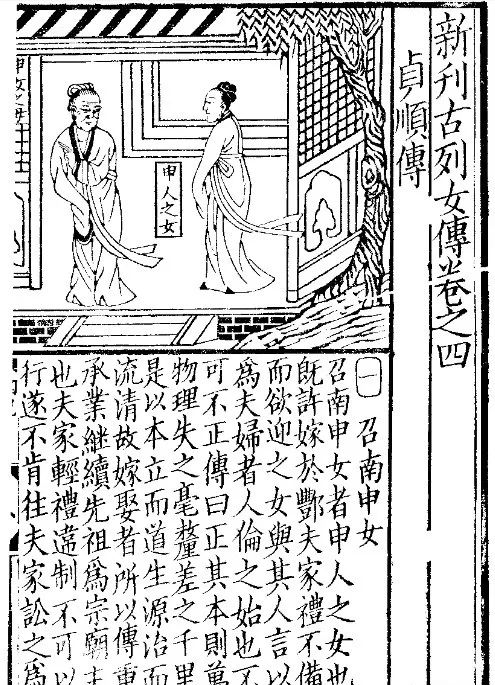 新刊古列女傳卷之四
貞順傳
申女之母
申人之女
一 召南申女
召南申女者申人之女也
既許嫁於酆夫家禮不備
而欲迎之女與其人言以
爲夫婦者人倫之始也不
可不正傳曰正其本則萬
物理失之毫釐差之千里
是以本立而道生源治而
流清故嫁娶者所以傳重
承業継續先祖爲宗廟主
也夫家輕禮違制不可以
行遂不肯往夫家訟之爲